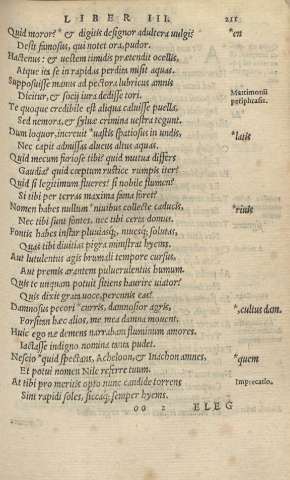 LIBER III. 211
Quid moror? * & digitis designor adultera uulgi? *en
Desit famosus, qui notet ora, pudor.
Hactenus: & uestem timidis prætendit ocellis,
Atque ita se in rapidas perdita misit aquas.
Supposuisse manus ad pectora lubricus amnis
Dicitur, & socij iura dedisse tori. Matrimonii
periphrasis.
Te quoque credibile est aliqua caluisse puella,
Sed nemora, & syluæ crimina uestra tegunt.
Dum loquor, increuit *uastis spatiosus in undis, *latis
Nec capit admissas alueus altus aquas.
Quid mecum furiose tibi? quid mutua differs
Gaudia? quid cœptum rustice rumpis iter?
Quid si legitimum flueres? si nobile flumen?
Si tibi per terras maxima fama foret?
Nomen habes nullum *niuibus collecte caducis, *riuis
Nec tibi sunt fontes, nec tibi certa domus.
Fontis habes instar pluuiasq́;, niuesq́; solutas,
Quas tibi diuitias pigra ministrat hyems.
Aut lutulentus agis brumali tempore cursus,
Aut premis arentem puluerulentus humum.
Quis te unquam potuit sitiens haurire uiator?
Quis dixit grata uoce, perennis eas?
Damnosus pecori *curris, damnosior agris, *cultus dam.
Forsitan hæc alios, me mea damna mouent,
Huic ego næ demens narrabam fluminum amores.
Iactasse indigno nomina tanta pudet.
Nescio *quid spectans, Acheloon, & Inachon amnes, *quem
Et potui nomen Nile referre tuum.
At tibi pro meritis opto nunc candide torrens Imprecatio.
Sint rapidi soles, siccaq́; semper hyems.
oo 2 ELEG